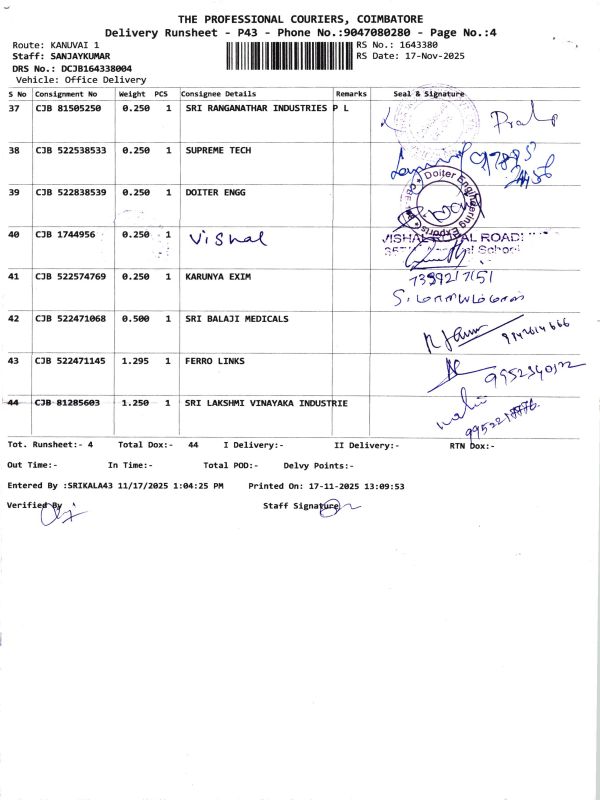 THE PROFESSIONAL COURIERS, COIMBATORE
Delivery Runsheet - P43 - Phone No.:9047080280 - Page No.:4
Route: KANUVAI 1 RS No.: 1643380
Staff: SANJAYKUMAR RS Date: 17-Nov-2025
DRS No.: DCJB164338004
Vehicle: Office Delivery
S No Consignment No Weight PCS Consignee Details Remarks Seal & Signature
37 CJB 81505250 0.250 1 SRI RANGANATHAR INDUSTRIES P L
38 CJB 522538533 0.250 1 SUPREME TECH
39 CJB 522838539 0.250 1 DOITER ENGG Doiter Engineering Exports
40 CJB 1744956 0.250 1 Vishal
41 CJB 522574769 0.250 1 KARUNYA EXIM
42 CJB 522471068 0.500 1 SRI BALAJI MEDICALS
43 CJB 522471145 1.295 1 FERRO LINKS
44 CJB 81285603 1.250 1 SRI LAKSHMI VINAYAKA INDUSTRIE
Tot. Runsheet:- 4 Total Dox:- 44 I Delivery:- II Delivery:- RTN Dox:-
Out Time:- In Time:- Total POD:- Delvy Points:-
Entered By :SRIKALA43 11/17/2025 1:04:25 PM Printed On: 17-11-2025 13:09:53
Verified By Staff Signature